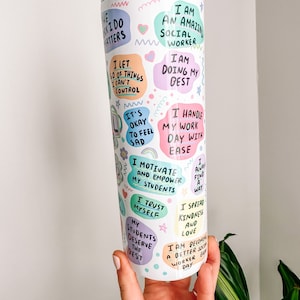 I DO
MATTERS
I AM
AN AMAZING
SOCIAL
WORKER
I LET
GO OF THINGS
I CAN'T
CONTROL
I AM
DOING MY
BEST
IT'S
OKAY
TO FEEL
SAD
I HANDLE
MY WORK
DAY WITH
EASE
I MOTIVATE
AND EMPOWER
MY STUDENTS
I TRUST
MYSELF
I SPREAD
KINDNESS
AND
LOVE
MY
STUDENTS
DESERVE
THE BEST
I AM BECOMING
A BETTER SOCIAL
WORKER
DAY